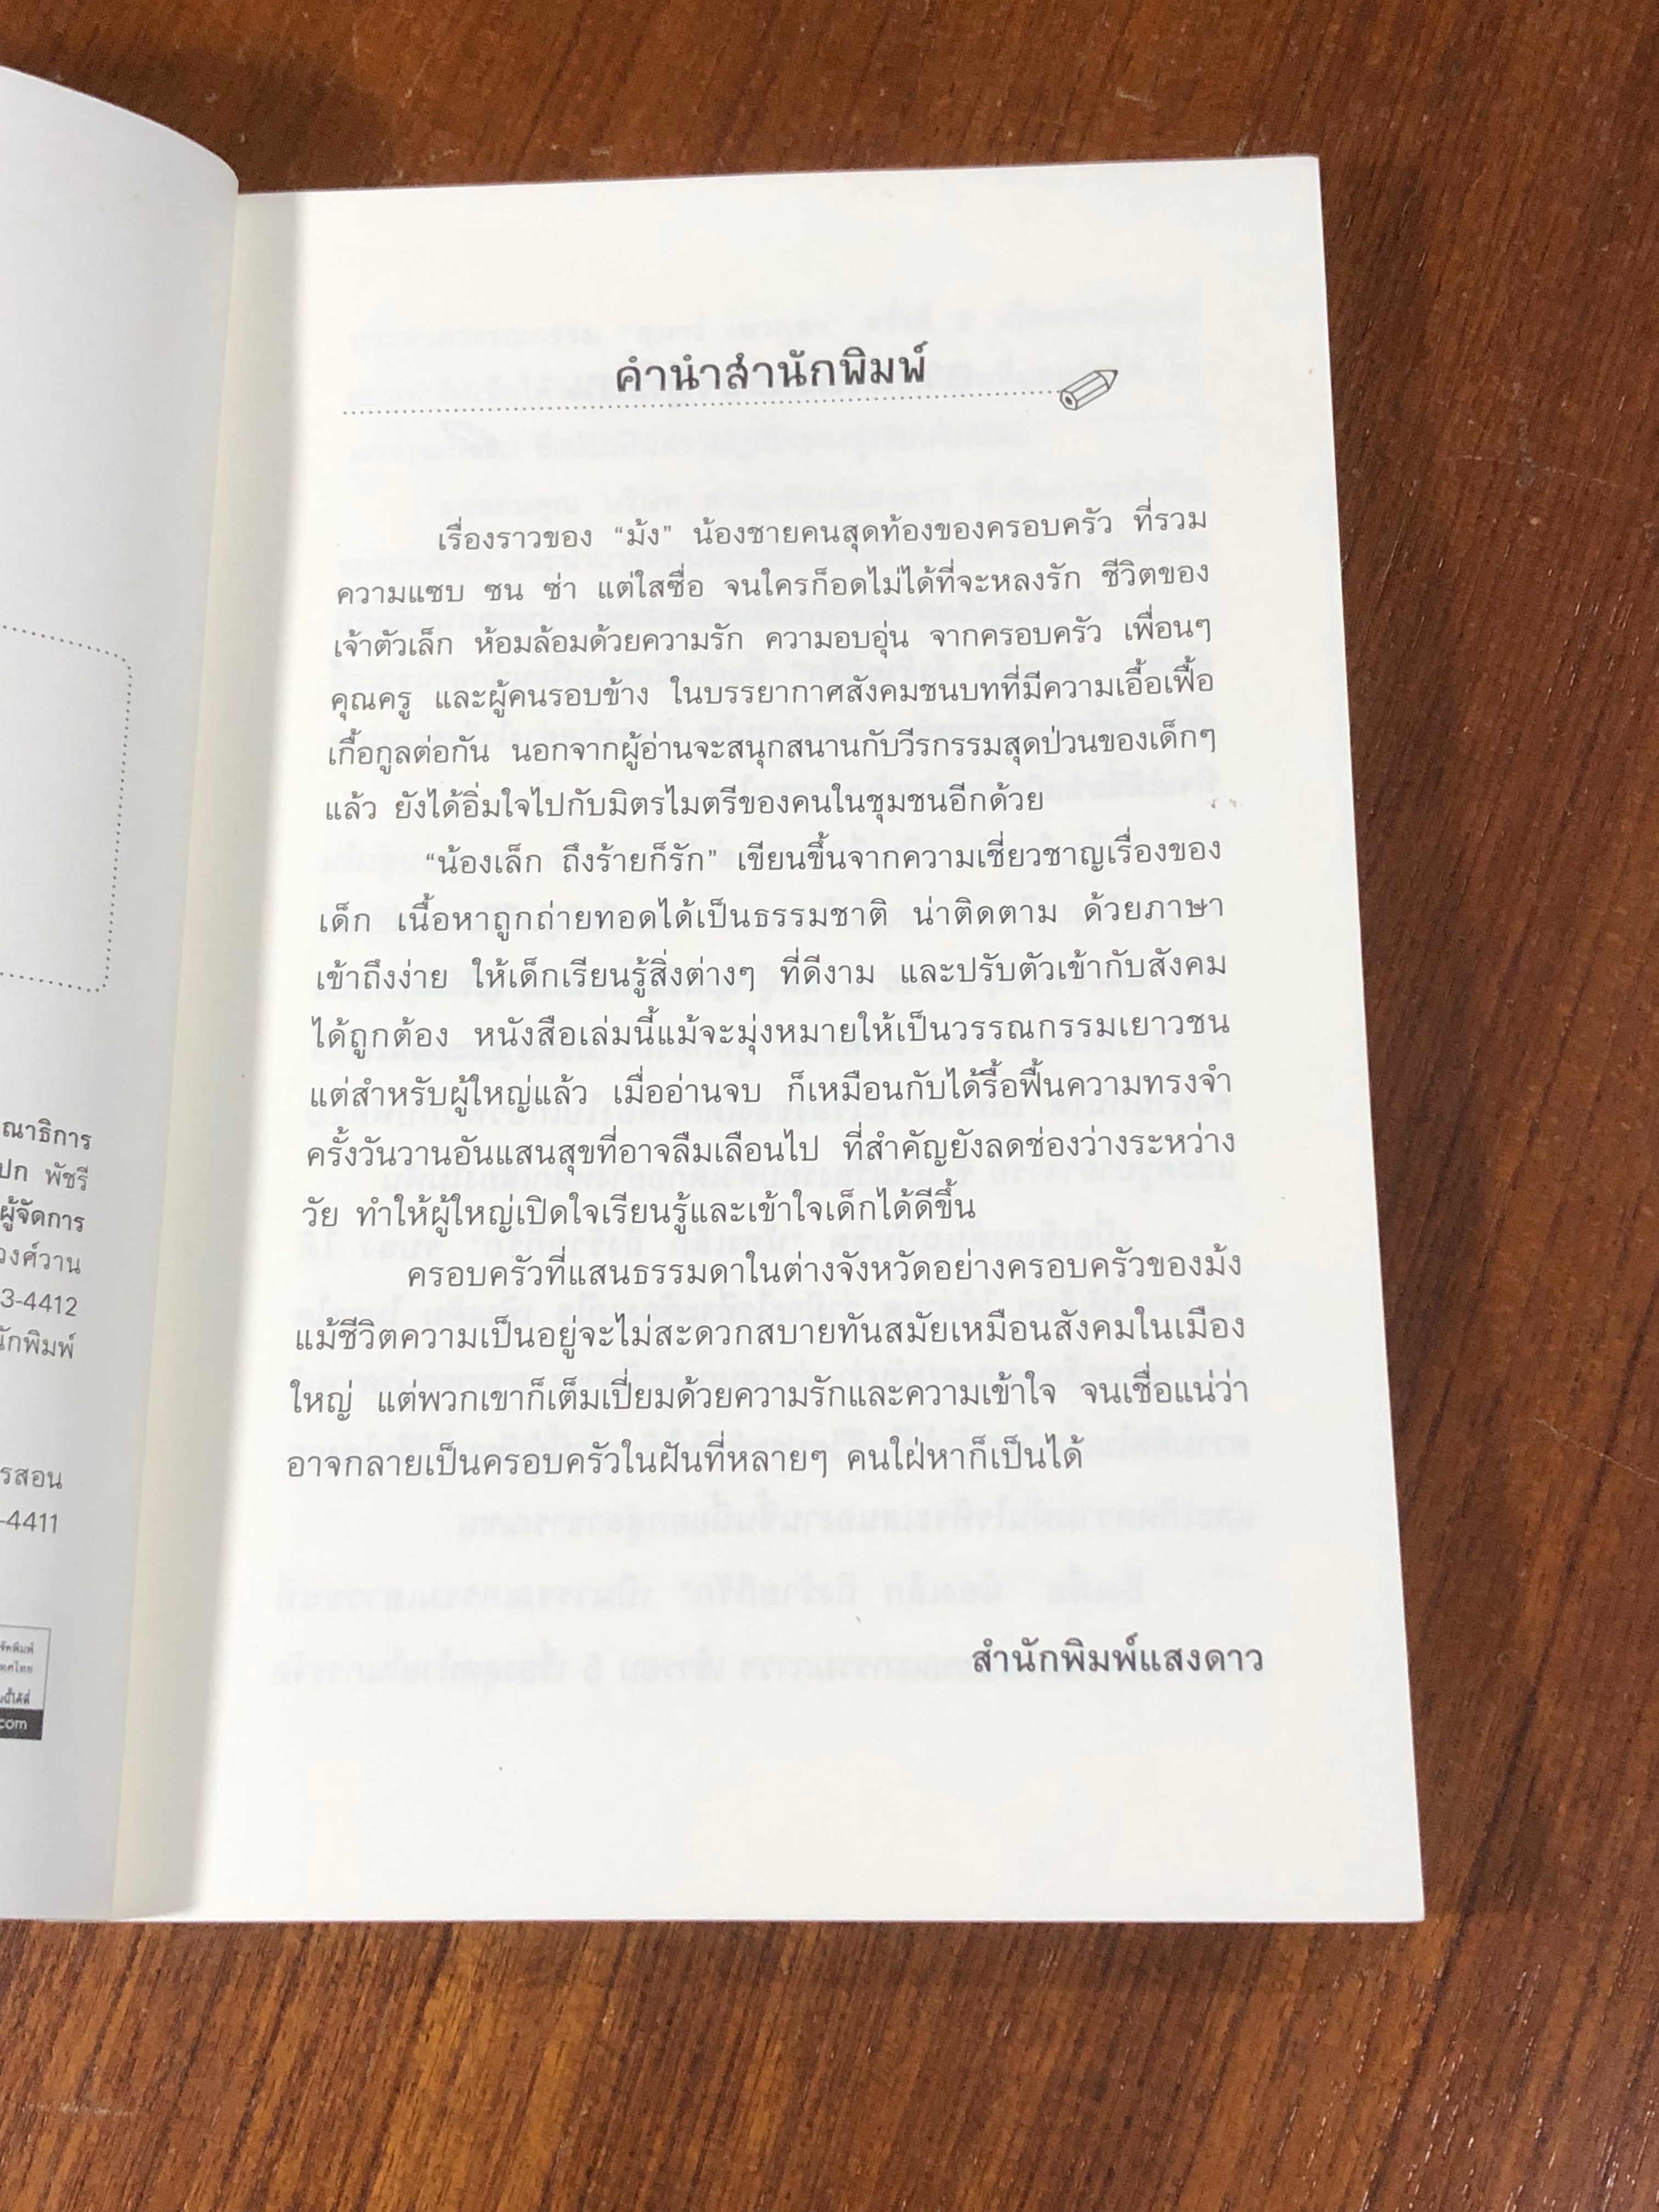 คำนำสำนักพิมพ์
เรื่องราวของ “ม้ง” น้องชายคนสุดท้องของครอบครัว ที่รวม
ความแซบ ซน ซ่า แต่ใสซื่อ จนใครก็อดไม่ได้ที่จะหลงรัก ชีวิตของ
เจ้าตัวเล็ก ห้อมล้อมด้วยความรัก ความอบอุ่น จากครอบครัว เพื่อนๆ
คุณครู และผู้คนรอบข้าง ในบรรยากาศสังคมชนบทที่มีความเอื้อเฟื้อ
เกื้อกูลต่อกัน นอกจากผู้อ่านจะสนุกสนานกับวีรกรรมสุดป่วนของเด็กๆ
แล้ว ยังได้อิ่มใจไปกับมิตรไมตรีของคนในชุมชนอีกด้วย
“น้องเล็ก ถึงร้ายก็รัก” เขียนขึ้นจากความเชี่ยวชาญเรื่องของ
เด็ก เนื้อหาถูกถ่ายทอดได้เป็นธรรมชาติ น่าติดตาม ด้วยภาษา
เข้าถึงง่าย ให้เด็กเรียนรู้สิ่งต่างๆ ที่ดีงาม และปรับตัวเข้ากับสังคม
ได้ถูกต้อง หนังสือเล่มนี้แม้จะมุ่งหมายให้เป็นวรรณกรรมเยาวชน
แต่สำหรับผู้ใหญ่แล้ว เมื่ออ่านจบ ก็เหมือนกับได้รื้อฟื้นความทรงจำ
ครั้งวันวานอันแสนสุขที่อาจลืมเลือนไป ที่สำคัญยังลดช่องว่างระหว่าง
วัย ทำให้ผู้ใหญ่เปิดใจเรียนรู้และเข้าใจเด็กได้ดีขึ้น
ครอบครัวที่แสนธรรมดาในต่างจังหวัดอย่างครอบครัวของม้ง
แม้ชีวิตความเป็นอยู่จะไม่สะดวกสบายทันสมัยเหมือนสังคมในเมือง
ใหญ่ แต่พวกเขาก็เต็มเปี่ยมด้วยความรักและความเข้าใจ จนเชื่อแน่ว่า
อาจกลายเป็นครอบครัวในฝันที่หลายๆ คนใฝ่หาก็เป็นได้
สำนักพิมพ์แสงดาว
ณาธิการ
ปก พัชรี
ผู้จัดการ
วงศ์วาน
3-4412
นักพิมพ์
รสอน
-4411
com